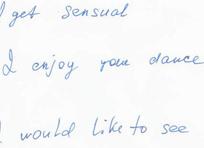 I get sensual
I enjoy your dance
I would like to see